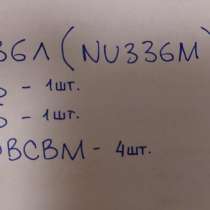 36Л (NU336M)
- 1шт.
- 1шт.
ВСВМ - 4шт.